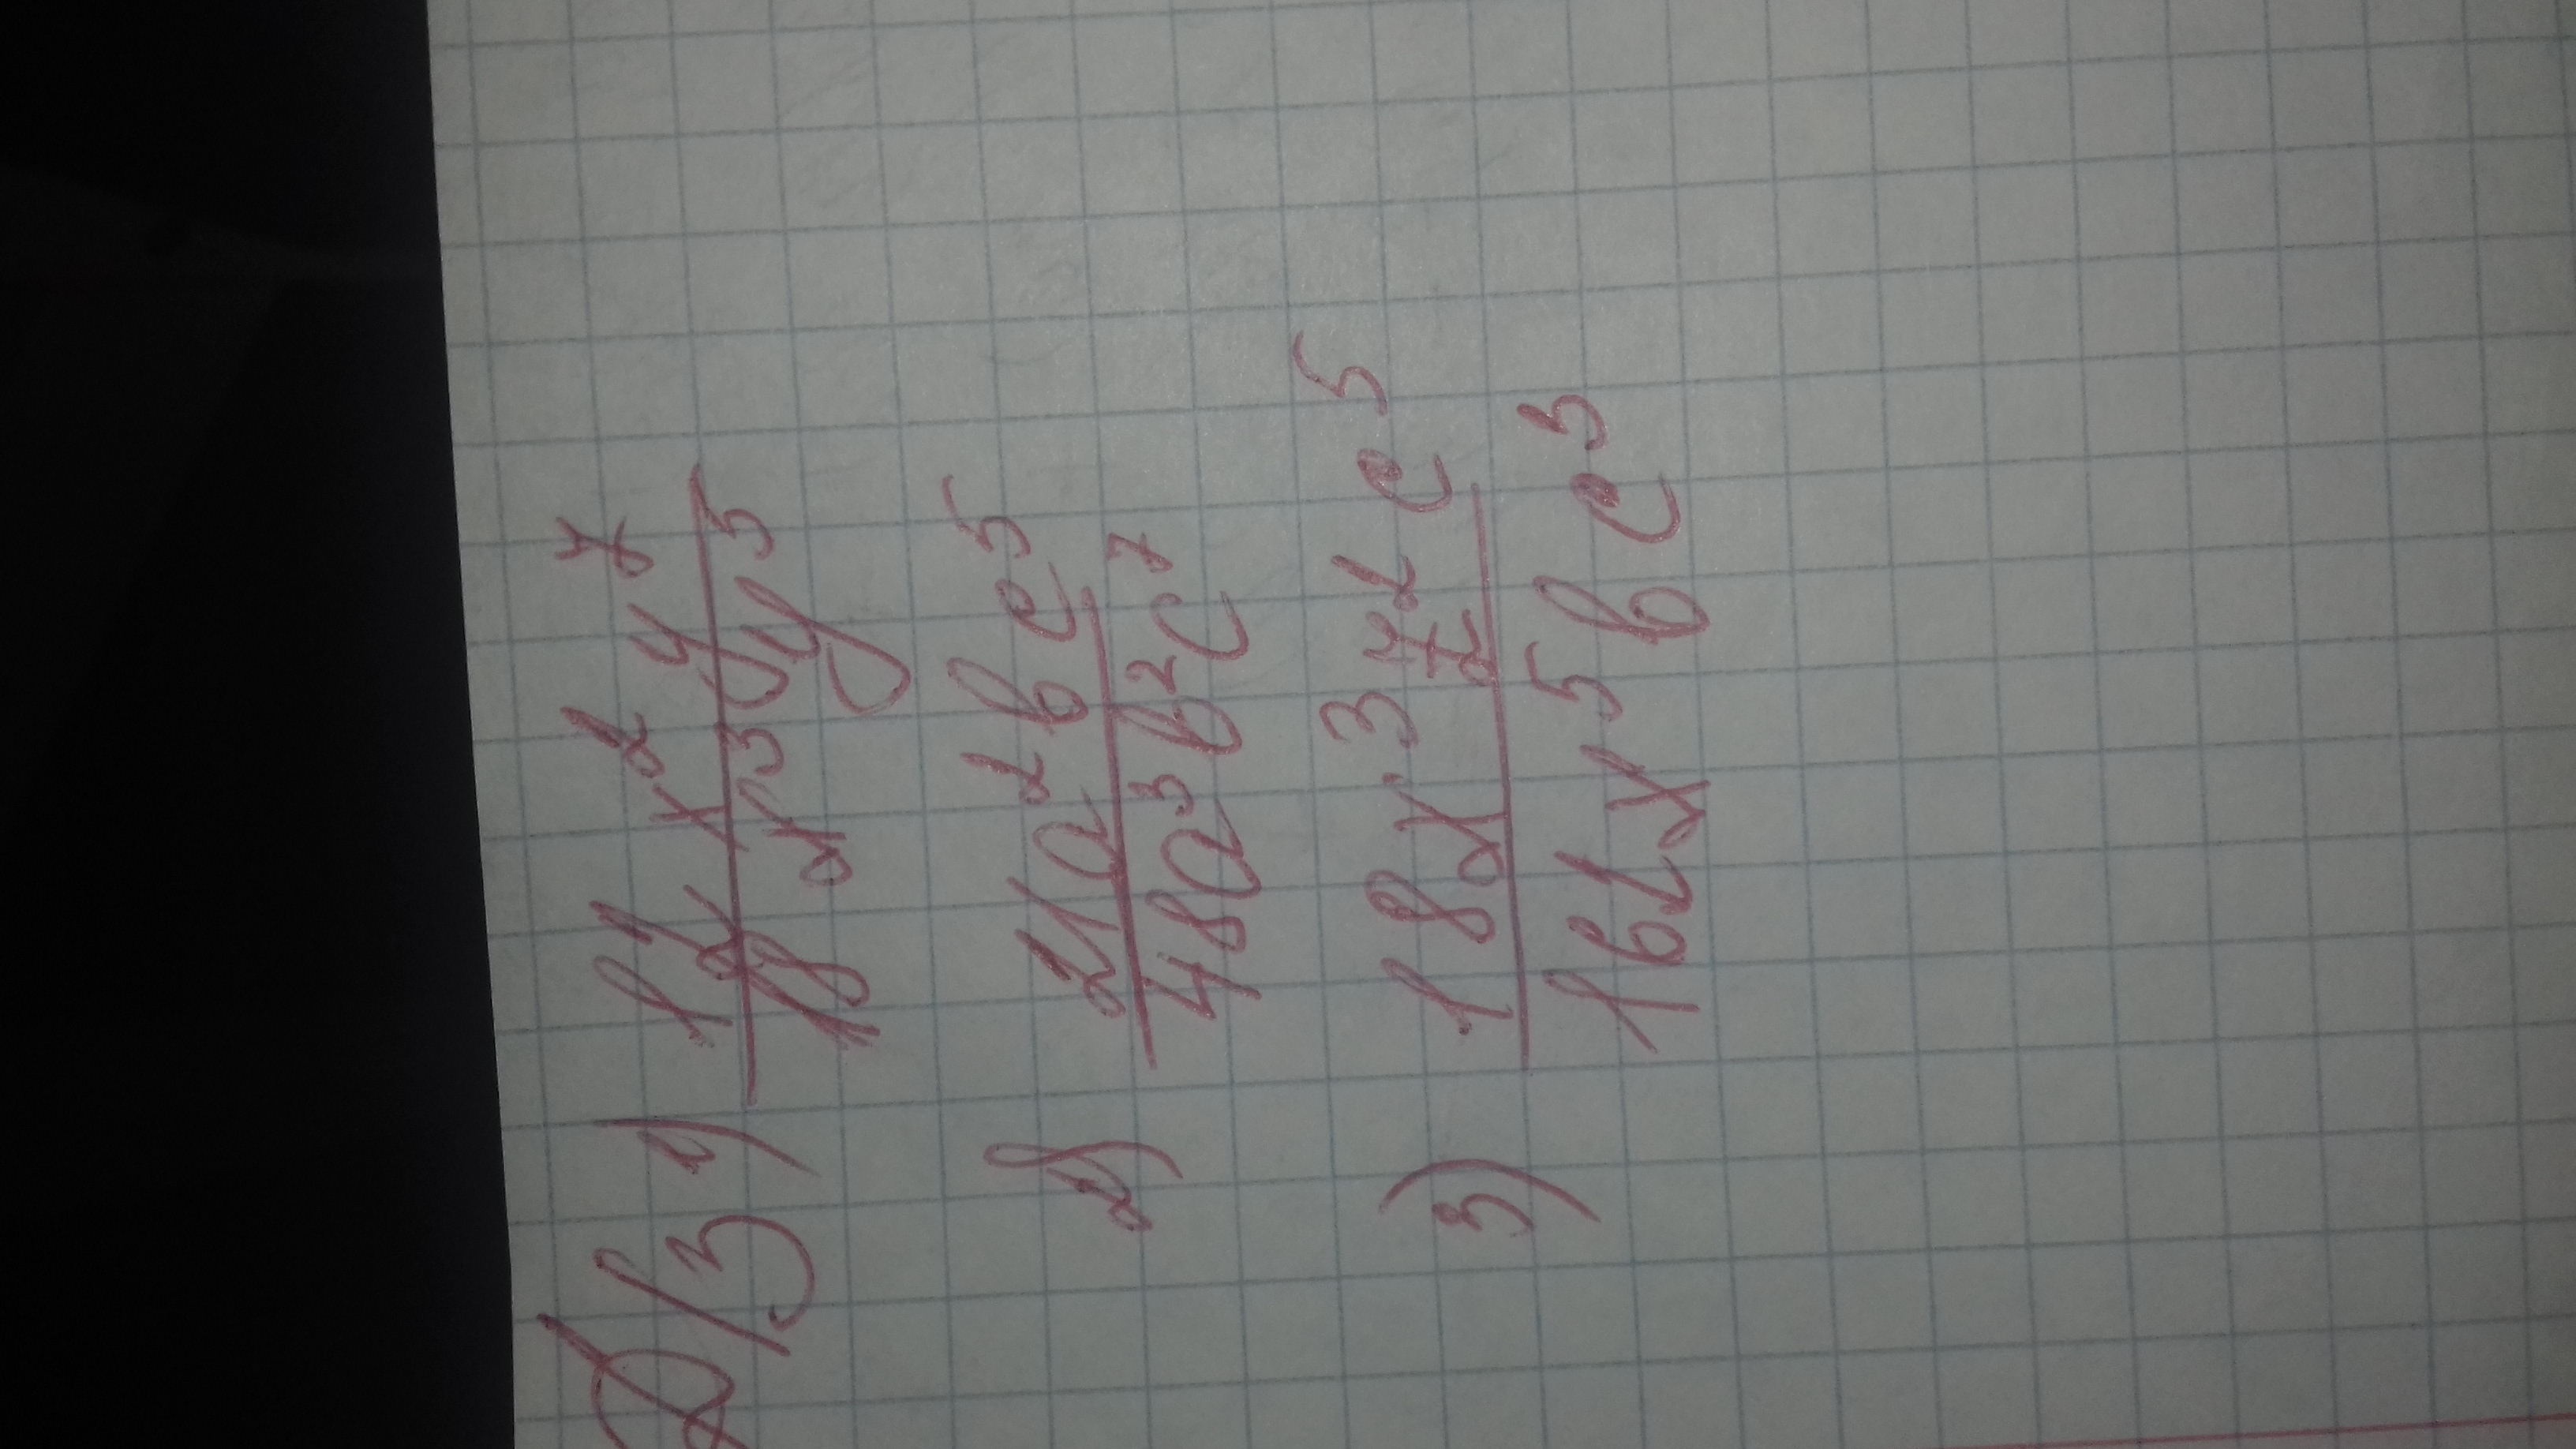 Д/З 1) 12x²y⁷
18x³y³
2) 21a²bc⁵
48a³b²c⁷
3) 18x³z²c⁵
162x⁵bc³